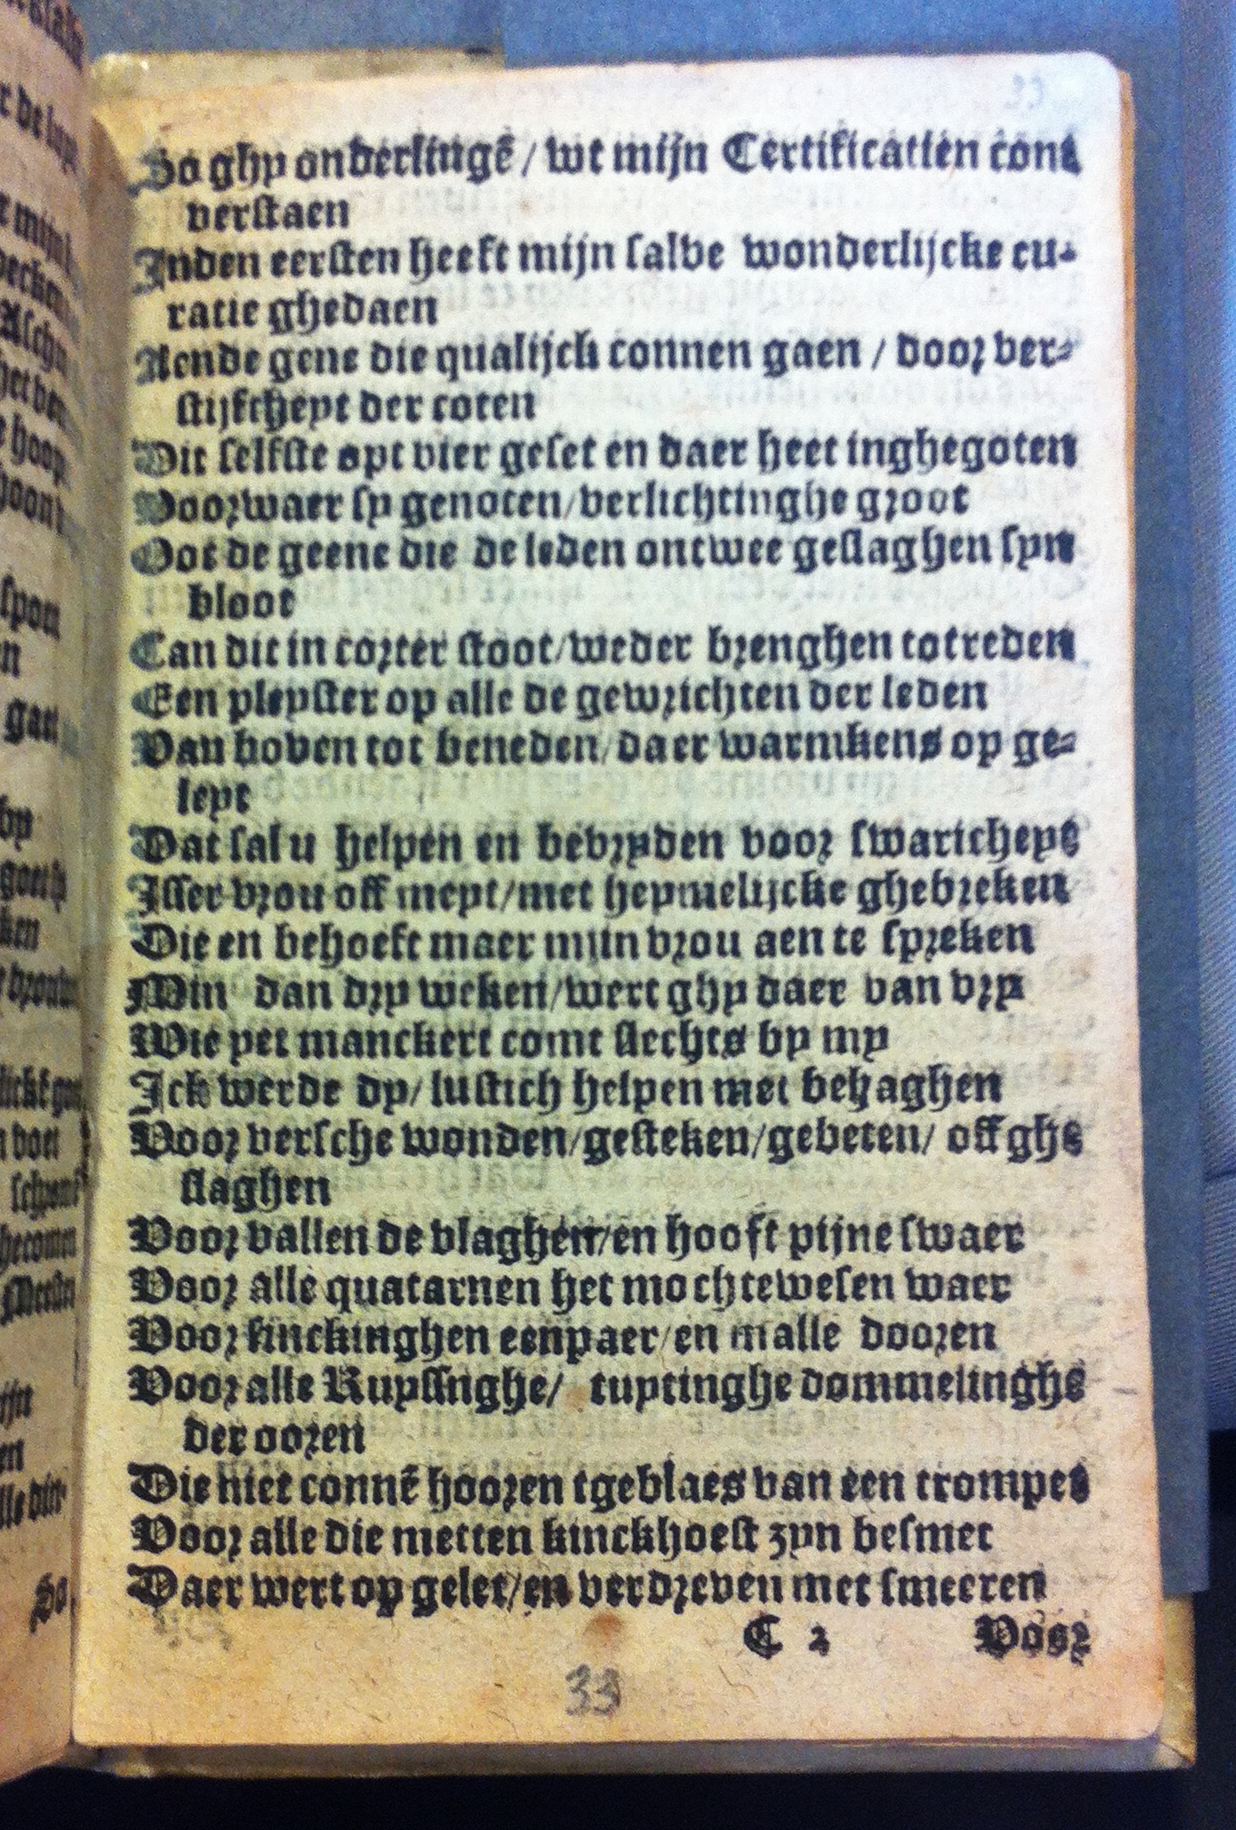 So ghy onderlingẽ / wt mijn Certificatien cont
verstaen
Inden eersten heeft mijn salve wonderlijcke cu-
ratie ghedaen
Aende gene die qualijck connen gaen / door ver-
stijftheyt der coten
Dit selfste opt vier geset en daer heet inghegoten
Voorwaer sy genoten/verlichtinghe groot
Oot de geene die de leden ontwee geslaghen syn
bloot
Can dit in corter stoot/weder brenghen tot reden
Een pleyster op alle de gewrichten der leden
Van boven tot beneden/daer warmkens op ge-
leyt
Dat sal u helpen en bevryden voor swaricheyt
Isser vrou off meyt/met heymelijcke ghebreken
Die en behoeft maer mijn vrou aen te spreken
Min dan dry weken/wert ghy daer van vry
Wie yet manckert comt slechts by my
Ick werde dy/ lustich helpen met behaghen
Voor versche wonden/gesteken/gebeten/ off ghe
slaghen
Voor vallende vlaghen/en hooft pijne swaer
Voor alle quatarnen het mochtewesen waer
Voor sinckinghen eenpaer/en malle dooren
Voor alle Ruyssnghe/ tuytinghe dommelinghe
der ooren
Die niet connẽ hooren tgeblaes van een trompet
Voor alle die metten kinckhoest zyn besmet
Daer wert op gelet/en verdreven met smeeren
C 2 Voor
33